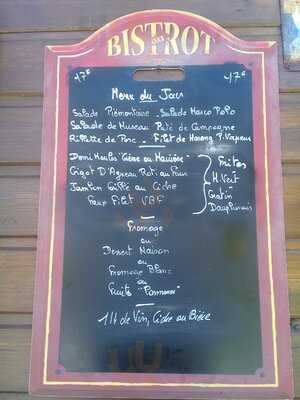 BISTROT
17€ 17€
Menu du Jour
Salade Piémontaise - Salade Marco Polo
Salade de Museau Paté de Campagne
Rillette de Porc - Filet de Hareng P. Vapeur
Demi Moules Crème ou Marinière
Gigot D'Agneau Roti au Four
Jambon Grillé au Cidre
Faux Filet VBF
Frites
H. Vert
Gratin
Dauphinois
Fromage
ou
Dessert Maison
ou
Fromage Blanc
ou
Fruits "Pommes"
1/4 de Vin, Cidre ou Bière